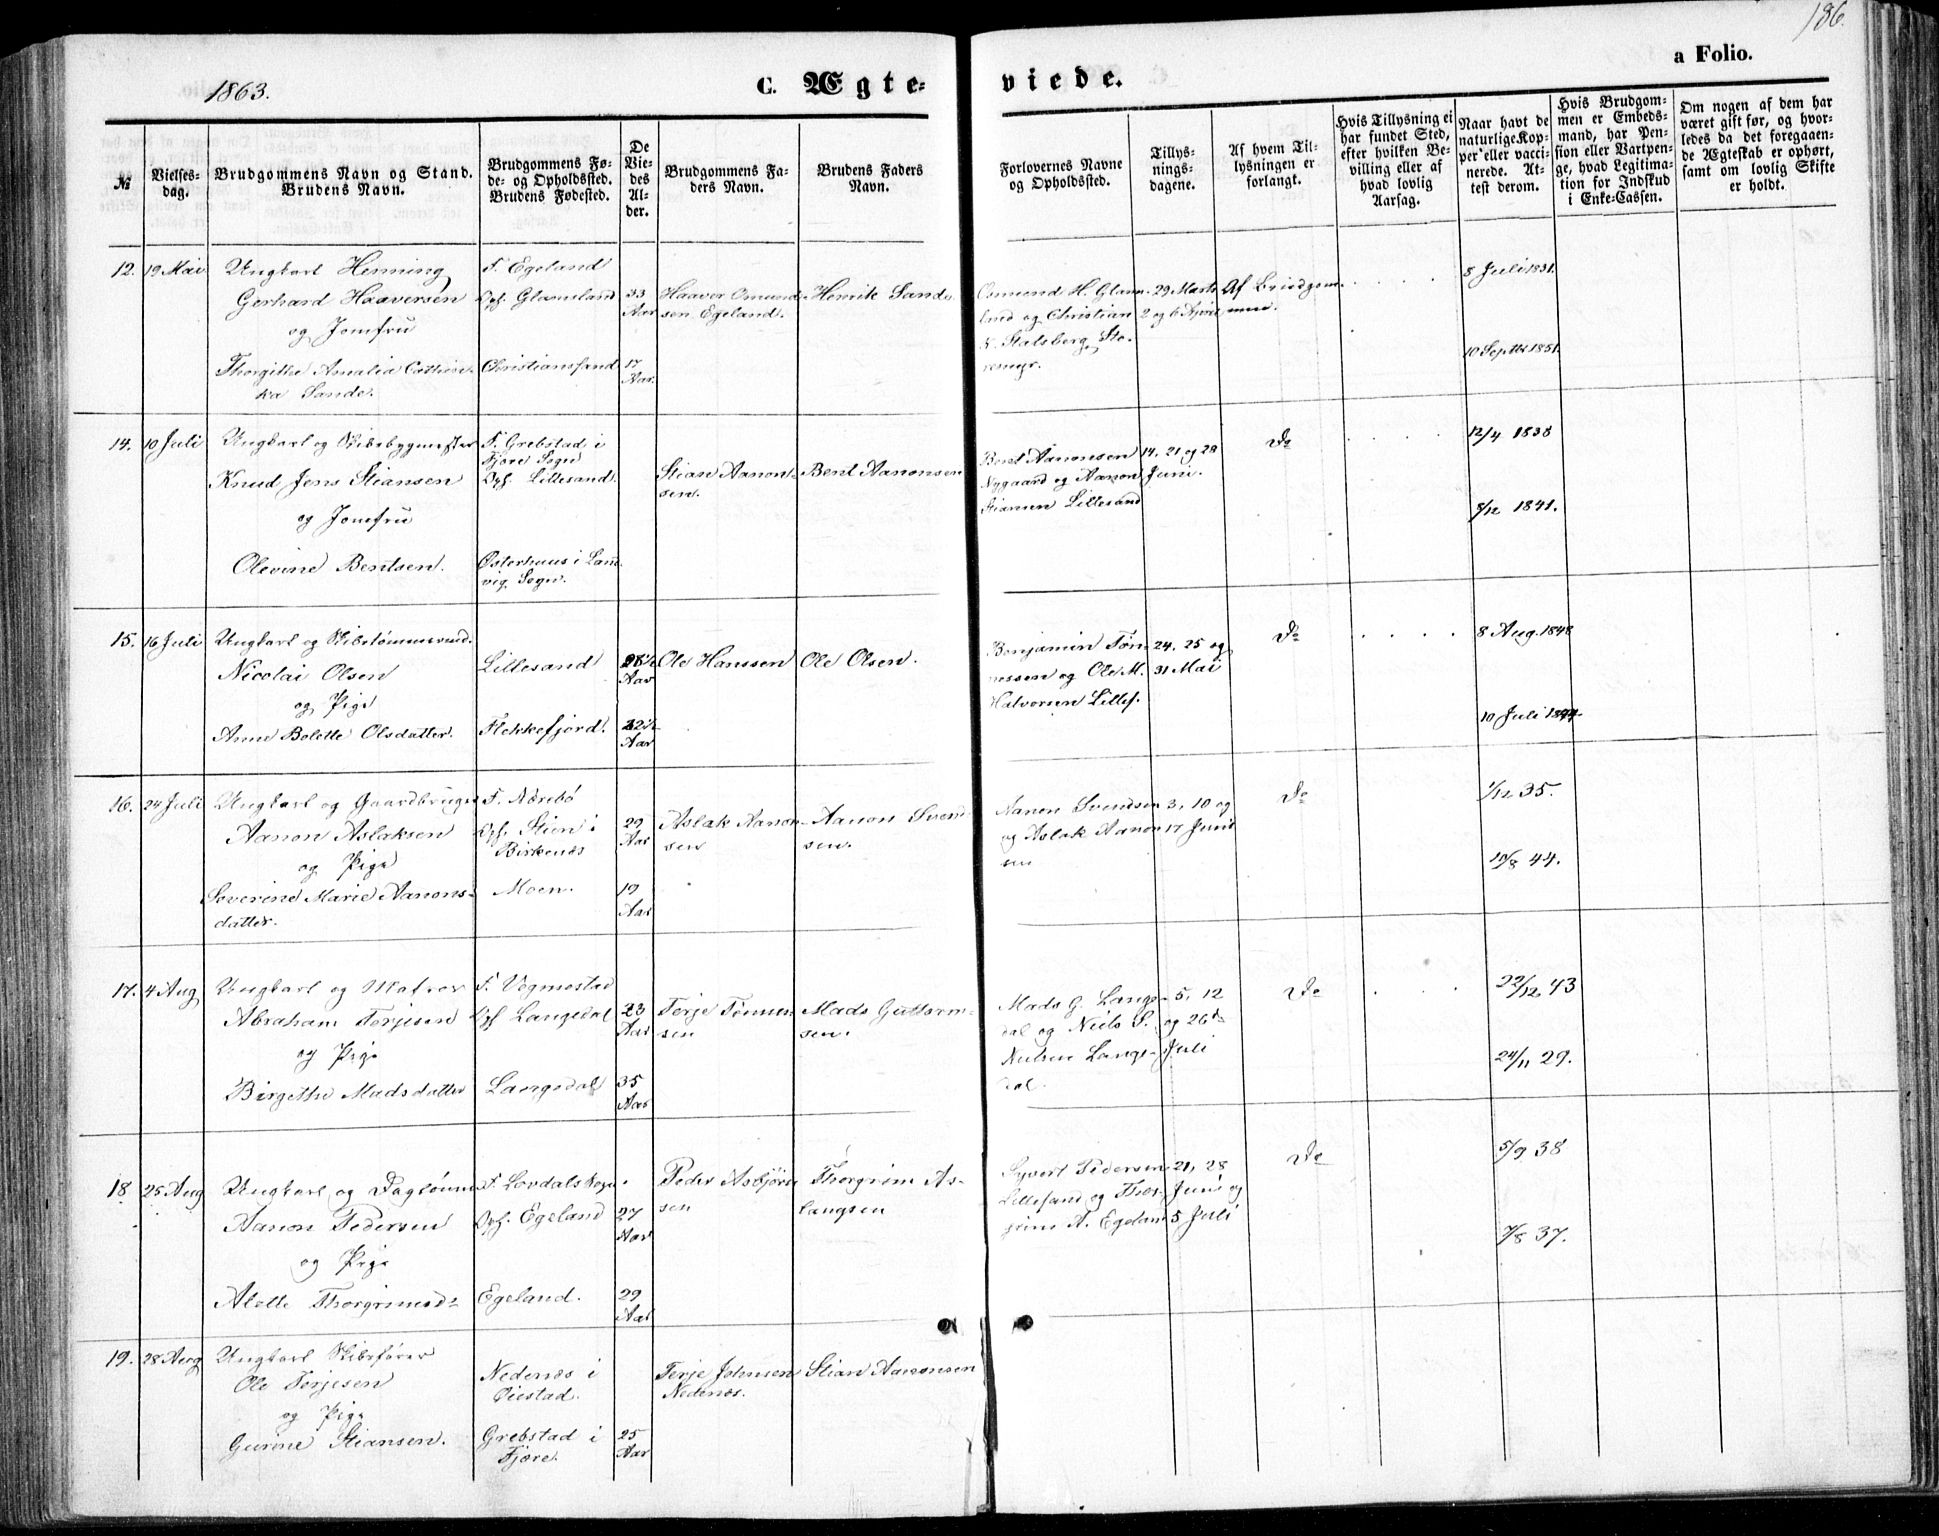 1863.
C. Ægte-
viede.
a Folio.
186.
№
Vielses-
dag.
Brudgommens Navn og Stand.
Brudens Navn.
Brudgommens Fø-
de- og Opholdssted.
Brudens Fødested.
De
Vie-
des
Al-
der.
Brudgommens Fa-
ders Navn.
Brudens Faders
Navn.
Forlovernes Navne
og Opholdssted.
Tillys-
nings-
dagene.
Af hvem Til-
lysningen er
forlangt.
Hvis Tillysning ei
har fundet Sted,
efter hvilken Be-
villing eller af
hvad lovlig
Aarsag.
Naar havt de
naturlige Kop-
per eller vacci-
nerede. At-
test derom.
Hvis Brudgom-
men er Embeds-
mand, har Pen-
sion eller Vartpen-
ge, hvad Legitima-
tion for Indskud
i Enke-Cassen.
Om nogen af dem har
været gift før, og hvor-
ledes da det foregaaen-
de Ægteskab er ophørt,
samt om lovlig Skifte
er holdt.
12.
19 Mai
Ungkarl Henning
Gerhard Haaversen
og Jomfru
Thorgitha Amalia Cathin-
ka Sande.
F. Egeland
Oph. Glamsland
Christianssand
33
Aar
17
Aar.
Haaver Omund-
sen Egeland.
Henrik Sande.
Osmund H. Glams-
land og Christian
K. Stalsberg, Sto-
remyr.
29 Marts
2 og 6 April
Af Brudgom-
men.
8 Juli 1831.
10 Septbr 1851.
14.
10 Juli
Ungkarl og Skibsbygmester
Knud Jens Stiansen
og Jomfru
Olevine Bentsen.
F. Grebstad i
Fjære Sogn
Oph. Lillesand.
Østerhuus i Land-
vig Sogn.
Stian Aanon-
sen.
Bent Aanonsen
Bent Aanonsen
Nygaard og Aanon
Stiansen Lillesand
14, 21 og 28
Juni.
Do
12/4 1838
8/12 1841.
15.
16 Juli
Ungkarl og Skibstømmermd.
Nicolai Olsen
og Pige
Anne Bolette Olsdatter.
Lillesand
Flekkefjord.
Aar
Aar
Ole Hanssen
Ole Olsen.
Benjamin Tøn-
nessen og Ole M.
Halvorsen Lilles.
24, 25 og
31 Mai
Do
8 Aug. 1848
10 Juli 1844.
16.
24 Juli
Ungkarl og Gaardbruger
Aanon Aslaksen
og Pige
Severine Marie Aanons-
datter.
F. Næsebø
Oph. Stien i
Birkenæs
Moen.
29
Aar
19
Aar
Aslak Aanon-
sen
Aanon Svend-
sen.
Aanon Svendsen
og Aslak Aanon-
sen
3, 10 og
17 Juni
Do
1/12 35.
10/8 44.
17.
4 Aug
Ungkarl og Matros
Abraham Terjesen
og Pige
Birgithe Madsdatter
F. Vegmostad
Oph Langedal
Langedal
23
Aar
35
Aar
Terje Tønnes-
sen
Mads Guttorm-
sen.
Mads G. Lange-
dal og Niels S.
Nielsen Lange-
dal.
5, 12
og 26de
Juli
Do
22/12 43
24/11 29.
18.
25 Aug
Ungkarl og Daglønner
Aanon Pedersen
og Pige
Alette Thorgrimsd-
Oph. Egeland
Egeland.
27
Aar
29
Aar
Peder Asbjørn-
sen
Thorgrim As-
laugsen
Syvert Pedersen
Lillesand og Thor-
grim A. Egeland
21, 28
Juni og
5 Juli
Do
5/9 38
7/8 37.
19.
28 Aug
Ungkarl Skibsfører
Ole Terjesen
og Pige
Gurine Stiansen.
Nedenæs i
Øiestad.
Grebstad i
Fjære.
25
Aar
Terje Johnsen
Nedenæs.
Stian Aanonsen